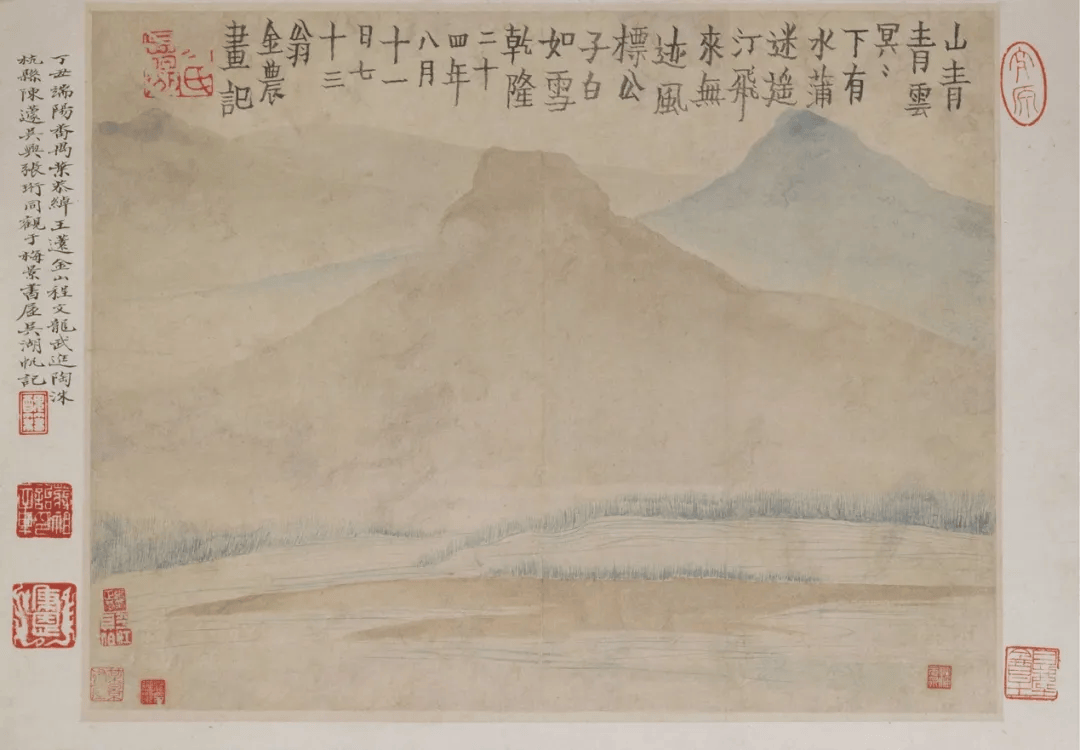 山青
青雲
冥〻
下有
水蒲
迷遥
汀飛
來無
迹風
標公
子白
如雪
乾隆
二十
四年
八月
十一
日七
十三
翁
金農
畫記
丁丑端陽番禺葉恭綽王薳金山程文龍武進陶洙
杭縣陳 吳興張珩同觀于梅景書屋吳湖帆記